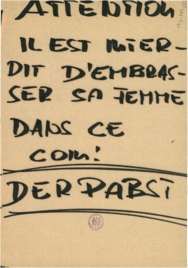 ATTENTION
IL EST INTER-
DIT D'EMBRAS-
SER SA FEMME
DANS CE
COM!
DER PABST